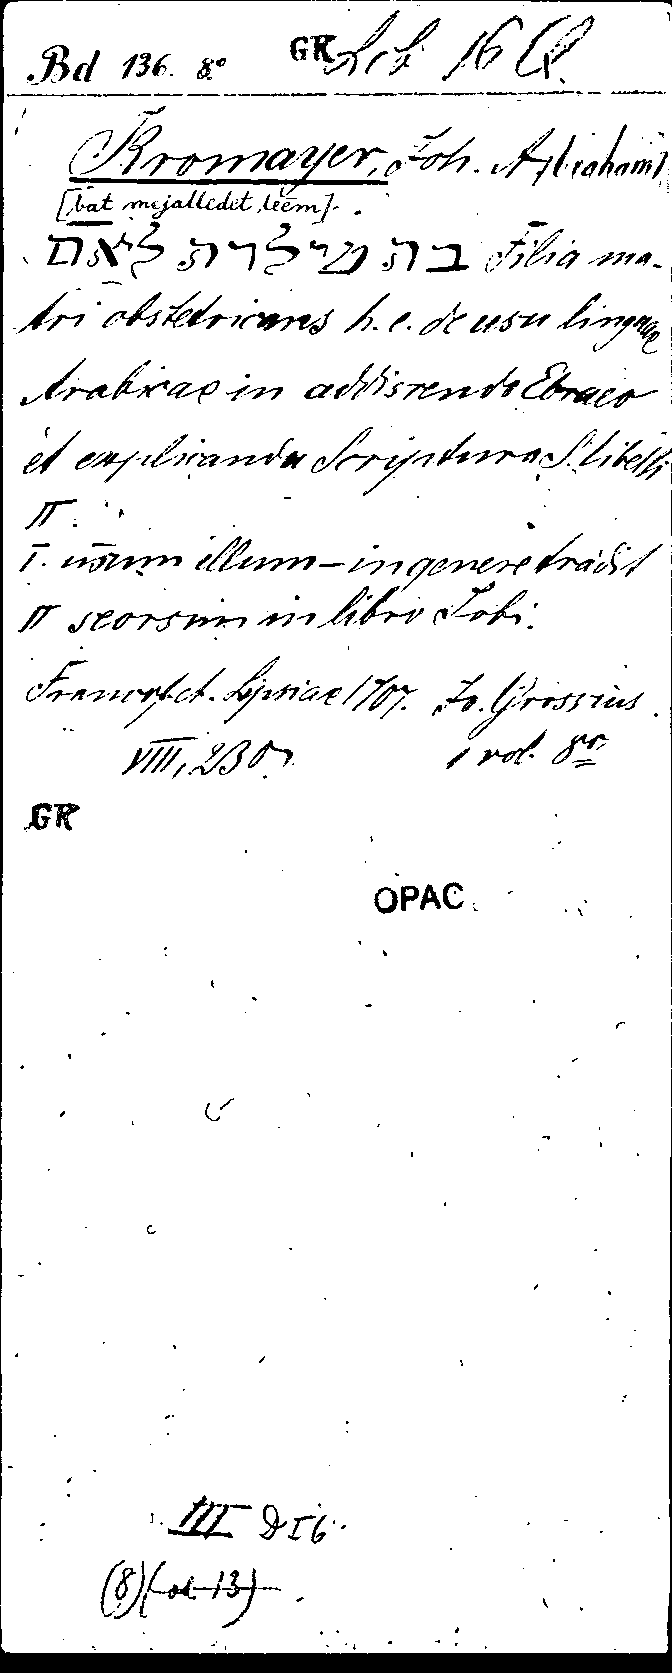 Bd 136. 8° GR 16
Kromayer, Joh. A[braham]
[bat mejalledet leēm].
בת מילדת לאם Filia ma-
tri obstetricans h. e. de usu linguae
Arabicae in addiscendo Ebraeo
et explicanda Scriptura S. libelli
II.
I. usum illum – in genere tradit
II seorsim in libro Jobi.
Francof. et. Lipsiae 1707. Jo. Grossius.
VIII, 230, 1 vol. 8vo
GR
OPAC
III D I 6.
(8)